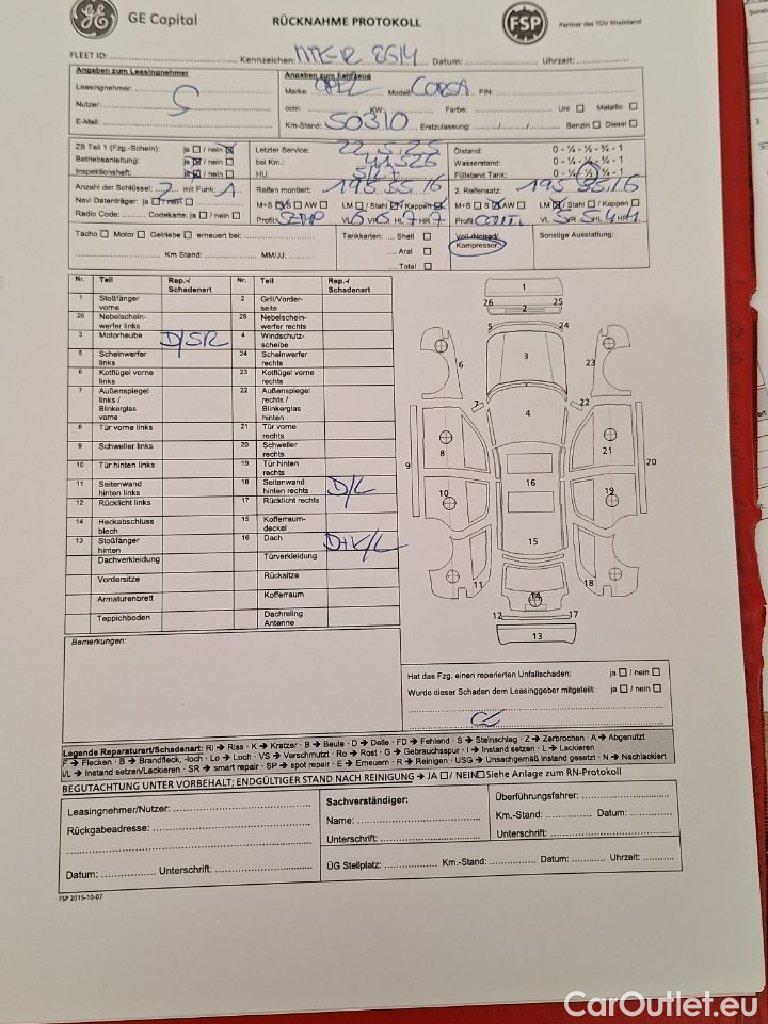 GE GE Capital RÜCKNAHME PROTOKOLL FSP Partner des TÜV Rheinland
FLEET ID: Kennzeichen: Datum: Uhrzeit:
Angaben zum Leasingnehmer Angaben zum Fahrzeug
Leasingnehmer: Marke OPEL Modell CORSA FIN:
Nutzer: ccm: KW: Farbe: Uni ☐ Metallic ☐
E-Mail: Km-Stand: 50310 Erstzulassung: Benzin ☐ Diesel ☐
ZB Teil 1 (Fzg.-Schein): ja ☐ / nein ☒ Letzter Service: 22.5.25 Ölstand: 0 - ¼ - ½ - ¾ - 1
Betriebsanleitung: ja ☒ / nein ☐ bei Km.: 41526 Wasserstand: 0 - ¼ - ½ - ¾ - 1
Inspektionsheft: ja ☒ / nein ☐ HU: 5/27 Füllstand Tank: 0 - ¼ - ½ - ¾ - 1
Anzahl der Schlüssel: 2 mit Funk: 1 Reifen montiert: 195 55 16 2. Reifensatz: 195 55 16
Navi Datenträger: ja ☐ / nein ☐ M+S ☒ S ☐ AW ☐ LM ☐ / Stahl ☒ / Kappen ☒ M+S ☐ S ☒ AW ☐ LM ☒ / Stahl ☐ / Kappen ☐
Radio Code: Codekarte: ja ☐ / nein ☐ Profil: VL 6 VR 5 HL 7 HR 7 Profil: CONTI VL 5 VR 5 HL 4 HR 4
Tacho ☐ Motor ☐ Getriebe ☐ erneuert bei: Tankkarten: Shell ☐ Voll-/Notrad/ Sonstige Ausstattung:
Aral ☐ Kompressor
Km Stand: MM/JJ: Total ☐
Nr. Teil Rep.-/ Schadenart Nr. Teil Rep.-/ Schadenart
1 Stoßfänger vorne 2 Grill/Vorderseite
26 Nebelscheinwerfer links 25 Nebelscheinwerfer rechts
3 Motorhaube D/SR 4 Windschutzscheibe
5 Scheinwerfer links 24 Scheinwerfer rechts
6 Kotflügel vorne links 23 Kotflügel vorne rechts
7 Außenspiegel links / Blinkerglas vorne 22 Außenspiegel rechts / Blinkerglas hinten
8 Tür vorne links 21 Tür vorne rechts
9 Schweller links 20 Schweller rechts
10 Tür hinten links 19 Tür hinten rechts
11 Seitenwand hinten links 18 Seitenwand hinten rechts D/L
12 Rücklicht links 17 Rücklicht rechts
14 Heckabschlussblech 15 Kofferraumdeckel
13 Stoßfänger hinten 16 Dach D+K/L
Dachverkleidung Türverkleidung
Vordersitze Rücksitze
Armaturenbrett Kofferraum
Teppichboden Dachreling Antenne
1
26 2 25
24
3
6 23
7 22
4
8 21
9 20
16
10 19
15
11 18
14
12 17
13
Bemerkungen:
Hat das Fzg. einen reparierten Unfallschaden: ja ☐ / nein ☐
Wurde dieser Schaden dem Leasinggeber mitgeteilt: ja ☐ / nein ☐
Legende Reparaturart/Schadenart: RI → Riss - K → Kratzer - B → Beule - D → Delle - FD → Fehlend - S → Steinschlag - Z → Zerbrochen - A → Abgenutzt
F → Flecken - B → Brandfleck, -loch - Lo → Loch - VS → Verschmutzt - Ro → Rost - G → Gebrauchsspur - I → Instand setzen - L → Lackieren
I/L → Instand setzen/Lackieren - SR → smart repair - SP → spot repair - E → Erneuern - R → Reinigen - USG → Unsachgemäß instand gesetzt - N → Nachlackiert
BEGUTACHTUNG UNTER VORBEHALT; ENDGÜLTIGER STAND NACH REINIGUNG → JA ☐ / NEIN ☐ Siehe Anlage zum RN-Protokoll
Leasingnehmer/Nutzer: Sachverständiger: Überführungsfahrer:
Rückgabeadresse: Name: Km.-Stand: Datum:
Unterschrift: Unterschrift:
Datum: Unterschrift: ÜG Stellplatz: Km.-Stand: Datum: Uhrzeit:
FSP 2015-10-07
CarOutlet.eu